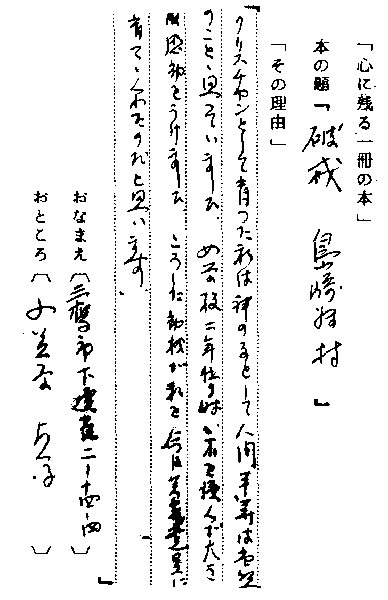 「心に残る一冊の本」
本の題「破戒 島崎藤村」
「その理由」
「クリスチャンとして育った私は神の子として人間平等は当然
のことと思っていました。女学校二年位の時、本を読んで大き
な感動をうけました。こうした感動が私を今日
育てゝくれたのだと思います。」
おなまえ〔三鷹市下連雀二ー十四ー
おところ〔